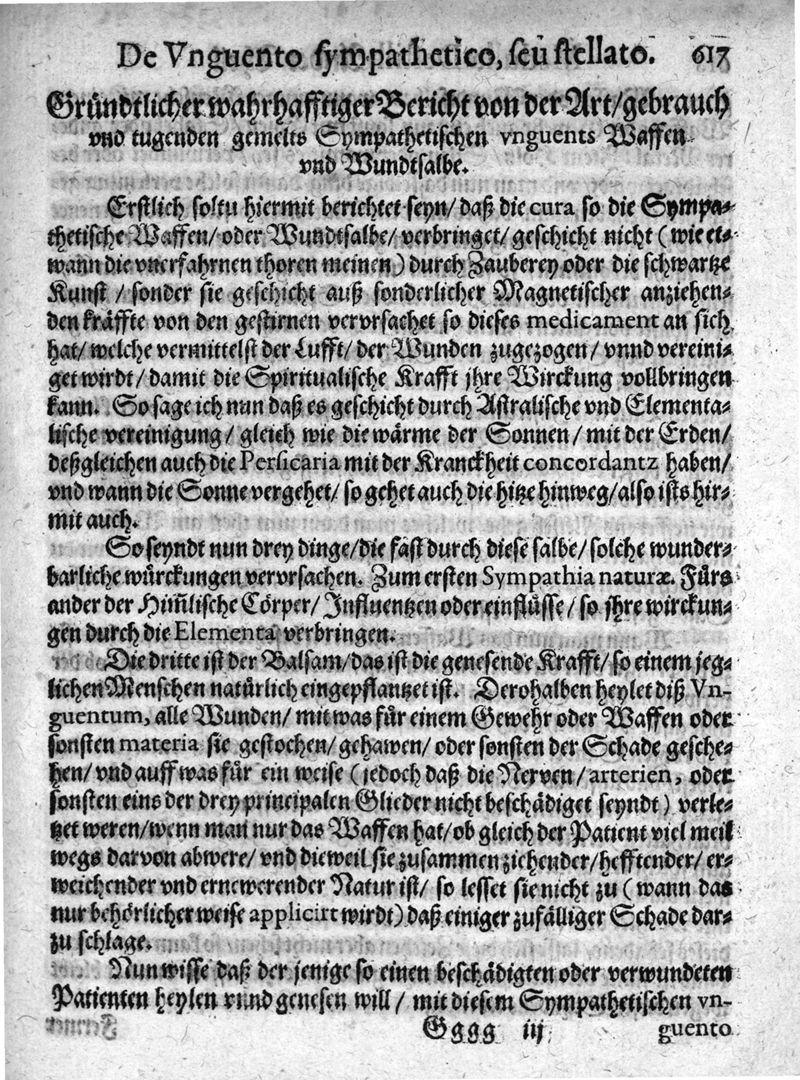 De Vnguento sympathetico, seu stellato. 617
Gründtlicher warhafftiger Bericht von der Art/ gebrauch
vnd tugenden gemelts Sympathetischen vnguents Waffen
vnd Wundtsalbe.
Erstlich soltu hiermit berichtet seyn/ daß die cura so die Sympa-
thetische Waffen/ oder Wundtsalbe/ verbringet/ geschicht nicht (wie et-
wann die vnerfahrnen thoren meinen) durch Zauberey oder die schwartze
Kunst / sonder sie geschicht auß sonderlicher Magnetischer anziehen-
den kräffte von den gestirnen vervrsachet so dieses medicament an sich
hat/ welche vermittelst der Lufft/ der Wunden zugezogen/ vnnd vereini-
get wirdt/ damit die Spiritualische Krafft jhre Wirckung vollbringen
kann. So sage ich nun daß es geschicht durch Astralische vnd Elementa-
lische vereinigung/ gleich wie die wärme der Sonnen/ mit der Erden/
deßgleichen auch die Persicaria mit der Kranckheit concordantz haben/
vnd wann die Sonne vergehet/ so gehet auch die hitze hinweg/ also ists hir-
mit auch.
So seyndt nun drey dinge/ die fäst durch diese salbe/ solche wunder-
barliche würckungen vervrsachen. Zum ersten Sympathia naturæ. Fürs
ander der Him̃lische Cörper/ Influentzen oder einflüsse/ so jhre wirckun-
gen durch die Elementa verbringen.
Die dritte ist der Balsam/ das ist die genesende Krafft/ so einem jeg-
lichen Menschen natürlich eingepflantzet ist. Derohalben heylet diß Vn-
guentum, alle Wunden/ mit was für einem Gewehr oder Waffen oder
sonsten materia sie gestochen/ gehawen/ oder sonsten der Schade gesche-
hen/ vnd auff was für ein weise (jedoch daß die Nerven/ arterien, oder
sonsten eins der drey principalen Glieder nicht beschädiget seyndt) verle-
tzet weren/ wenn man nur das Waffen hat/ ob gleich der Patient viel meil
wegs darvon abwere/ vnd dieweil sie zusammen ziehender/ hefftender/ er-
weichender vnd ernewerender Natur ist/ so lesset sie nicht zu (wann das
nur behörlicher weise applicirt wirdt) daß einiger zufälliger Schade dar-
zu schlage.
Nun wisse daß der jenige so einen beschädigten oder verwundeten
Patienten heylen vnnd genesen will/ mit diesem Sympathetischen vn-
Gggg iij guento